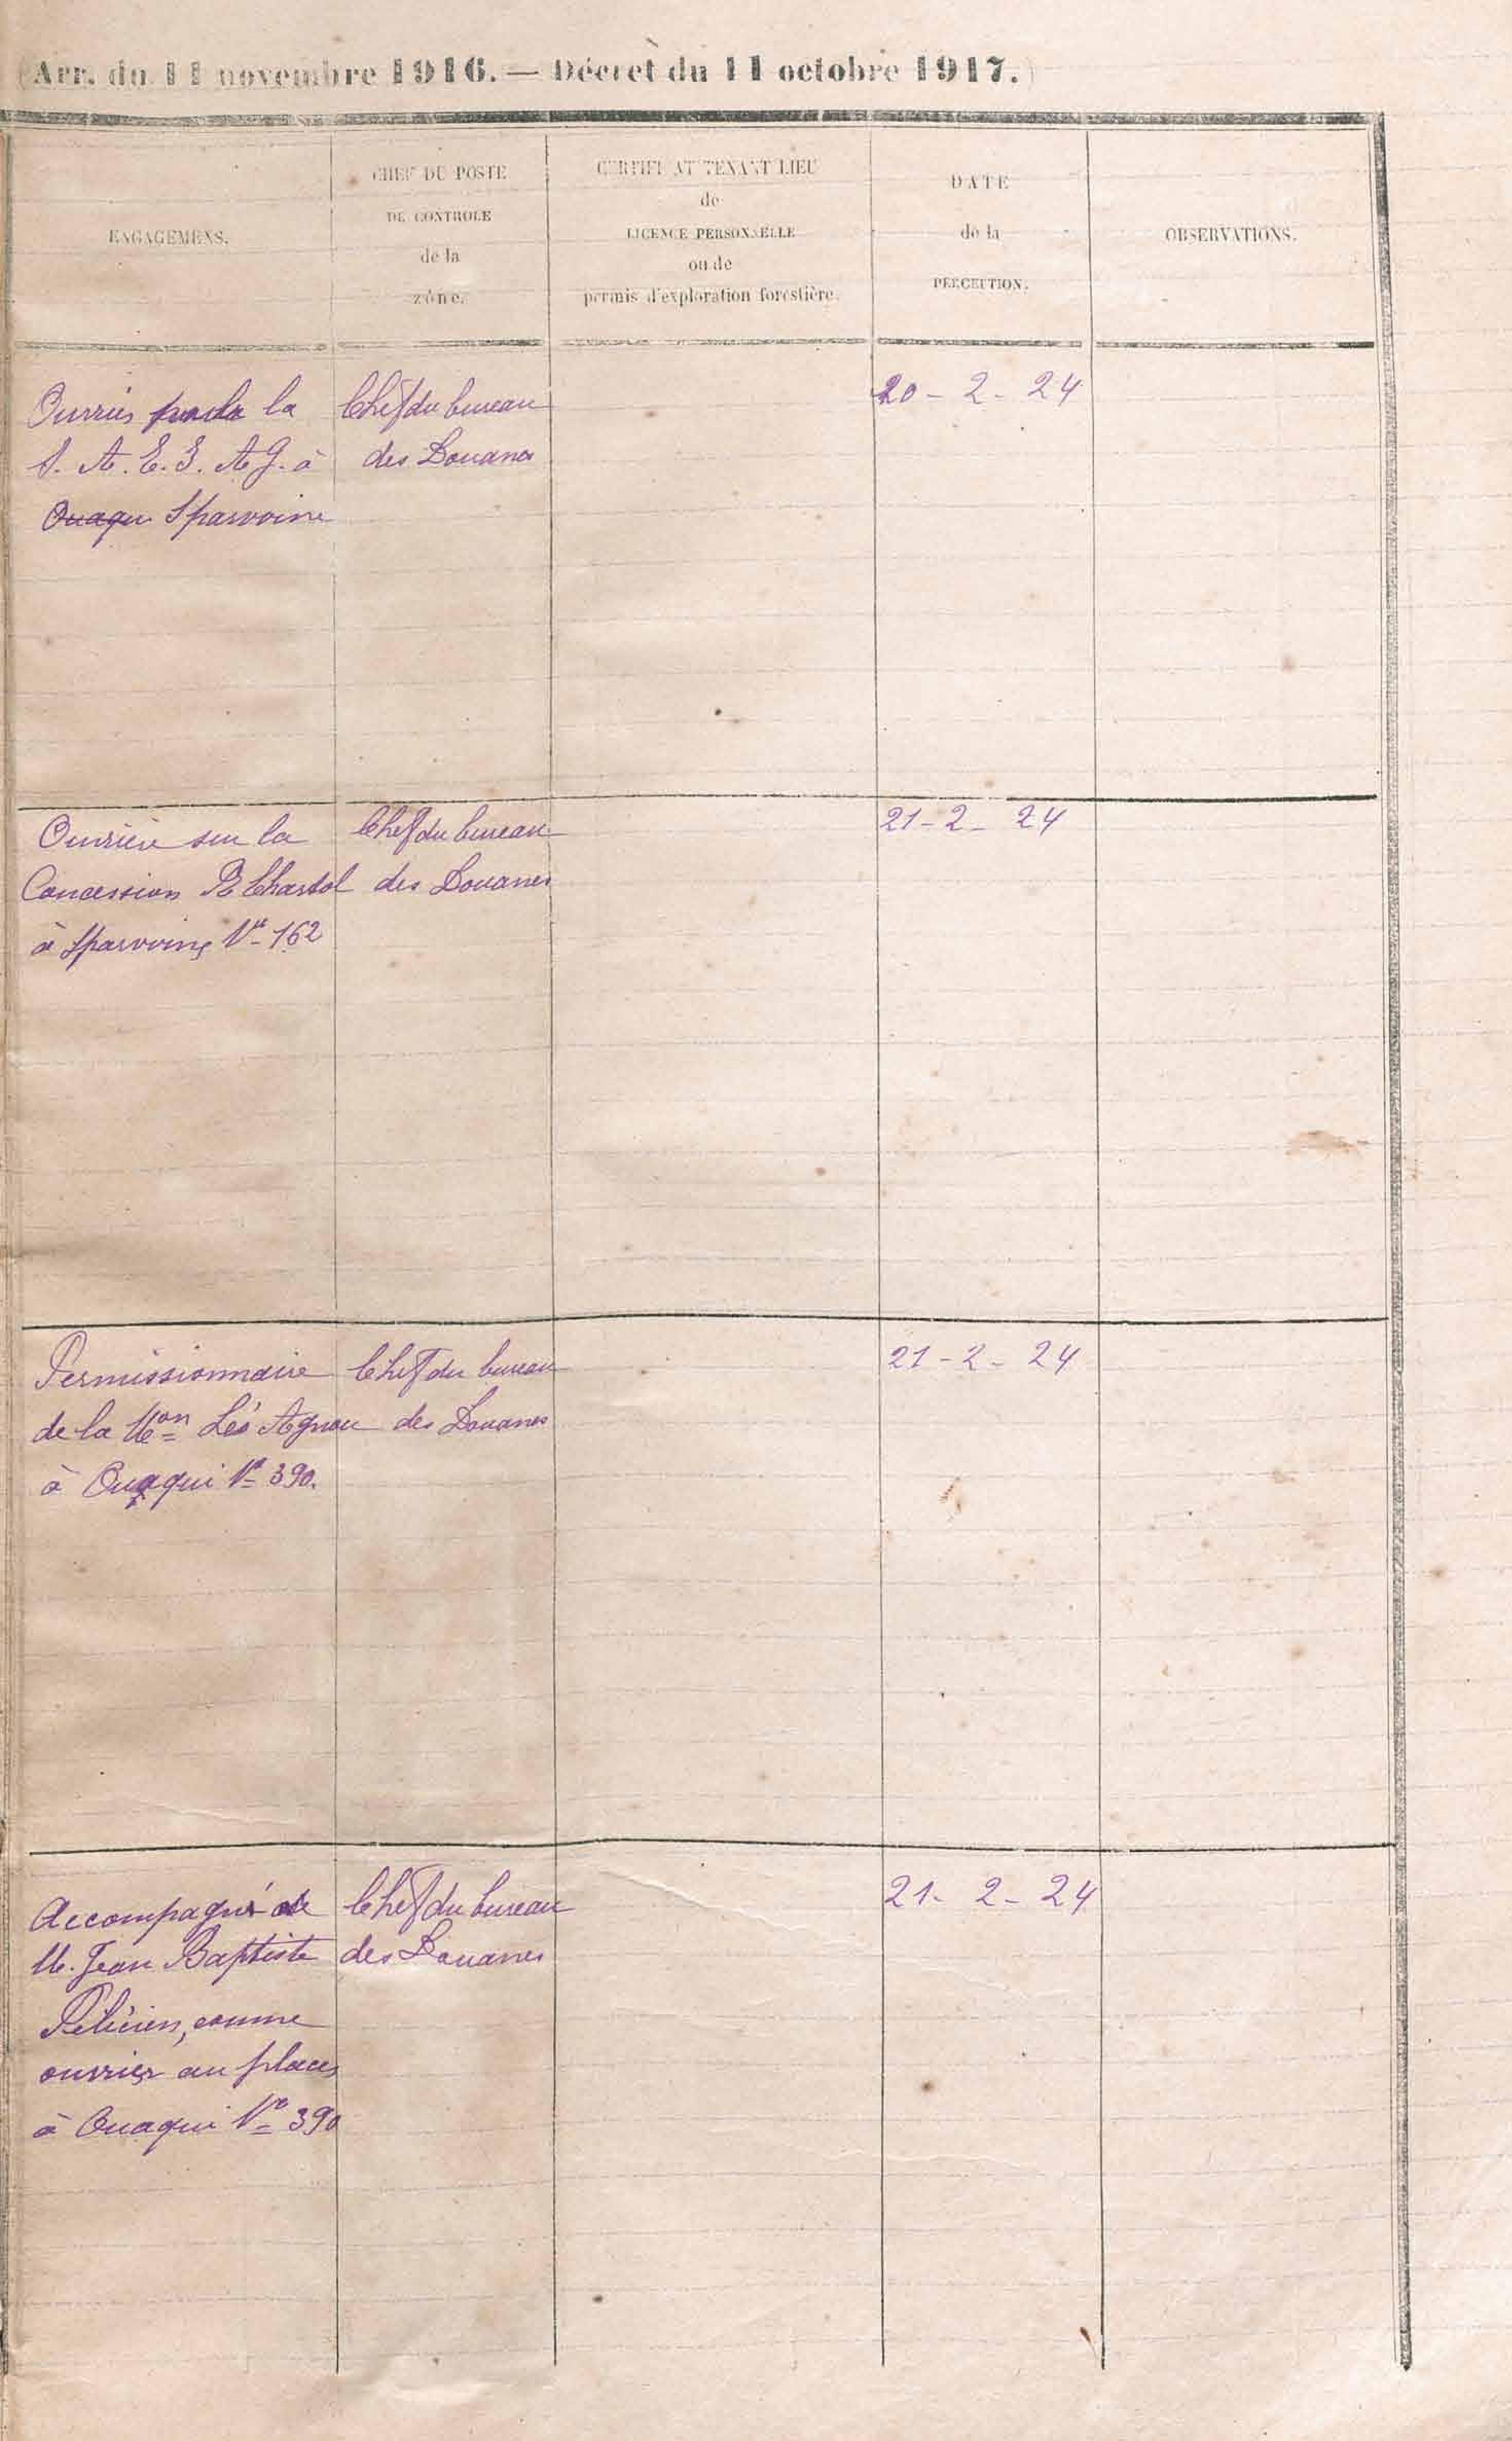 (Arr. du 11 novembre 1916. — Décret du 11 octobre 1917.)
ENGAGEMENS.
CHEF DU POSTE
DE CONTROLE
de la
zône.
CERTIFICAT TENANT LIEU
de
LICENCE PERSONNELLE
ou de
permis d'exploration forestière.
DATE
de la
PERCEPTION.
OBSERVATIONS.
Ouvrier la
S. A. E. J. A G. à
Ouaqui Sparwoine
Chef du bureau
des Douanes
20 - 2 - 24
Ouvrier sur la
Concession Chartol
à Sparwine Nº 162
Chef du bureau
des Douanes
21 - 2 - 24
Permissionnaire
de la Mon Léo Agnau
à Ouaqui Nº 390.
Chef du bureau
des Douanes
21 - 2 - 24
Accompagné de
M. Jean Baptiste
Félicien, comme
ouvrier au placer
à Ouaqui Nº 390
Chef du bureau
des Douanes
21 - 2 - 24